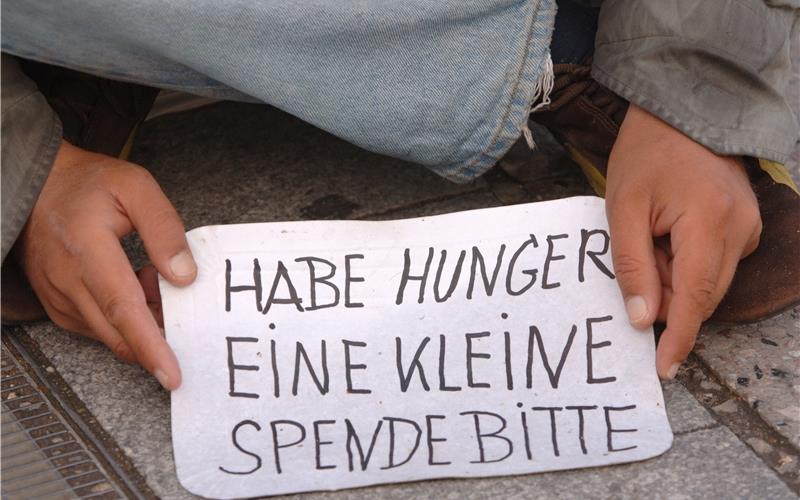 HABE HUNGER
EINE KLEINE
SPENDE BITTE